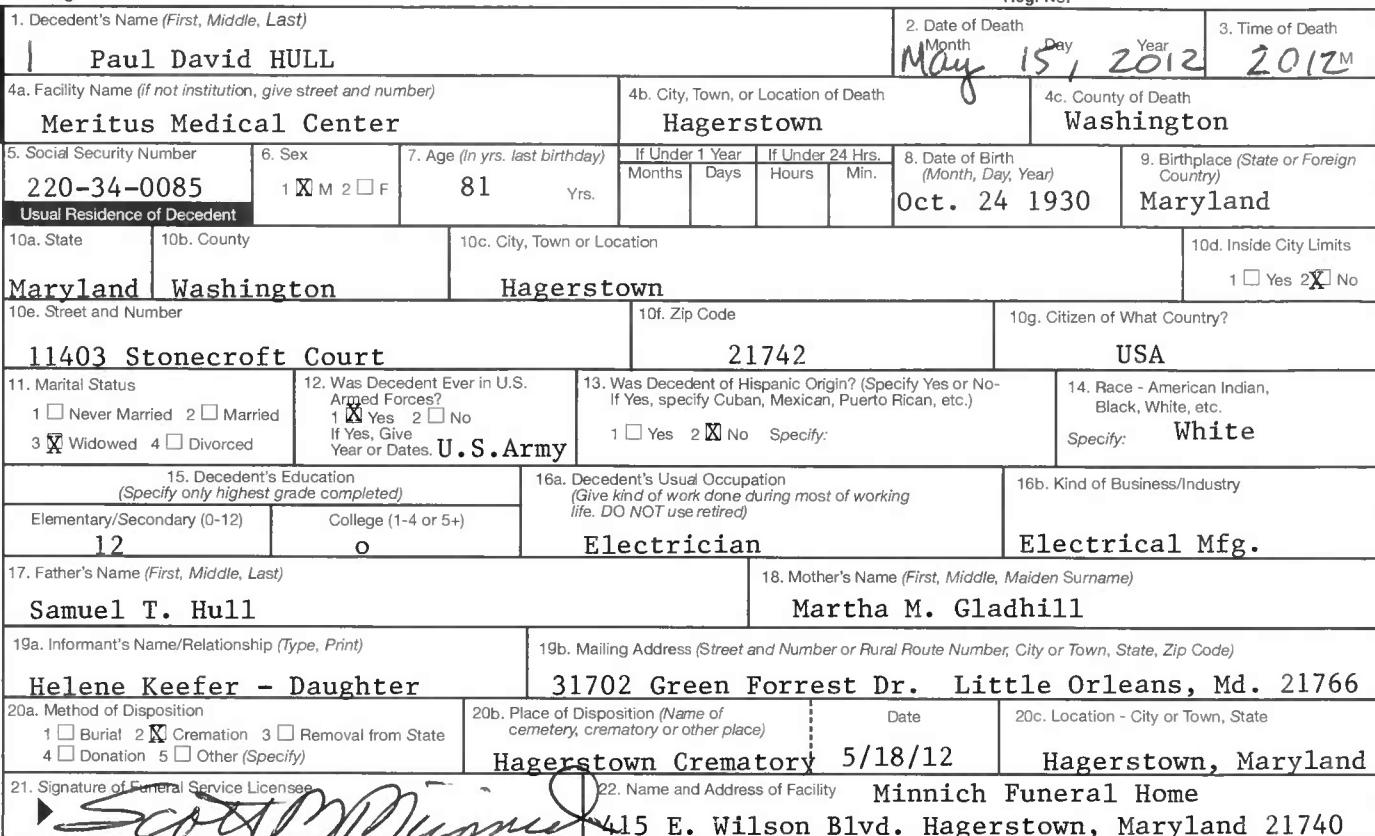 1. Decedent's Name (First, Middle, Last)
Paul David HULL
2. Date of Death
Month Day Year
May 15, 2012
3. Time of Death
2012 M
4a. Facility Name (if not institution, give street and number)
Meritus Medical Center
4b. City, Town, or Location of Death
Hagerstown
4c. County of Death
Washington
5. Social Security Number
220-34-0085
6. Sex
1 X M 2 □ F
7. Age (In yrs. last birthday)
81 Yrs.
If Under 1 Year
Months Days
If Under 24 Hrs.
Hours Min.
8. Date of Birth
(Month, Day, Year)
Oct. 24 1930
9. Birthplace (State or Foreign
Country)
Maryland
Usual Residence of Decedent
10a. State
Maryland
10b. County
Washington
10c. City, Town or Location
Hagerstown
10d. Inside City Limits
1 □ Yes 2 X No
10e. Street and Number
11403 Stonecroft Court
10f. Zip Code
21742
10g. Citizen of What Country?
USA
11. Marital Status
1 □ Never Married 2 □ Married
3 X Widowed 4 □ Divorced
12. Was Decedent Ever in U.S.
Armed Forces?
1 X Yes 2 □ No
If Yes, Give
Year or Dates. U.S.Army
13. Was Decedent of Hispanic Origin? (Specify Yes or No-
If Yes, specify Cuban, Mexican, Puerto Rican, etc.)
1 □ Yes 2 X No Specify:
14. Race - American Indian,
Black, White, etc.
Specify: White
15. Decedent's Education
(Specify only highest grade completed)
Elementary/Secondary (0-12)
12
College (1-4 or 5+)
o
16a. Decedent's Usual Occupation
(Give kind of work done during most of working
life. DO NOT use retired)
Electrician
16b. Kind of Business/Industry
Electrical Mfg.
17. Father's Name (First, Middle, Last)
Samuel T. Hull
18. Mother's Name (First, Middle, Maiden Surname)
Martha M. Gladhill
19a. Informant's Name/Relationship (Type, Print)
Helene Keefer - Daughter
19b. Mailing Address (Street and Number or Rural Route Number, City or Town, State, Zip Code)
31702 Green Forrest Dr. Little Orleans, Md. 21766
20a. Method of Disposition
1 □ Burial 2 X Cremation 3 □ Removal from State
4 □ Donation 5 □ Other (Specify)
20b. Place of Disposition (Name of
cemetery, crematory or other place)
Hagerstown Crematory
Date
5/18/12
20c. Location - City or Town, State
Hagerstown, Maryland
21. Signature of Funeral Service Licensee
Scott M Minnich
22. Name and Address of Facility Minnich Funeral Home
415 E. Wilson Blvd. Hagerstown, Maryland 21740